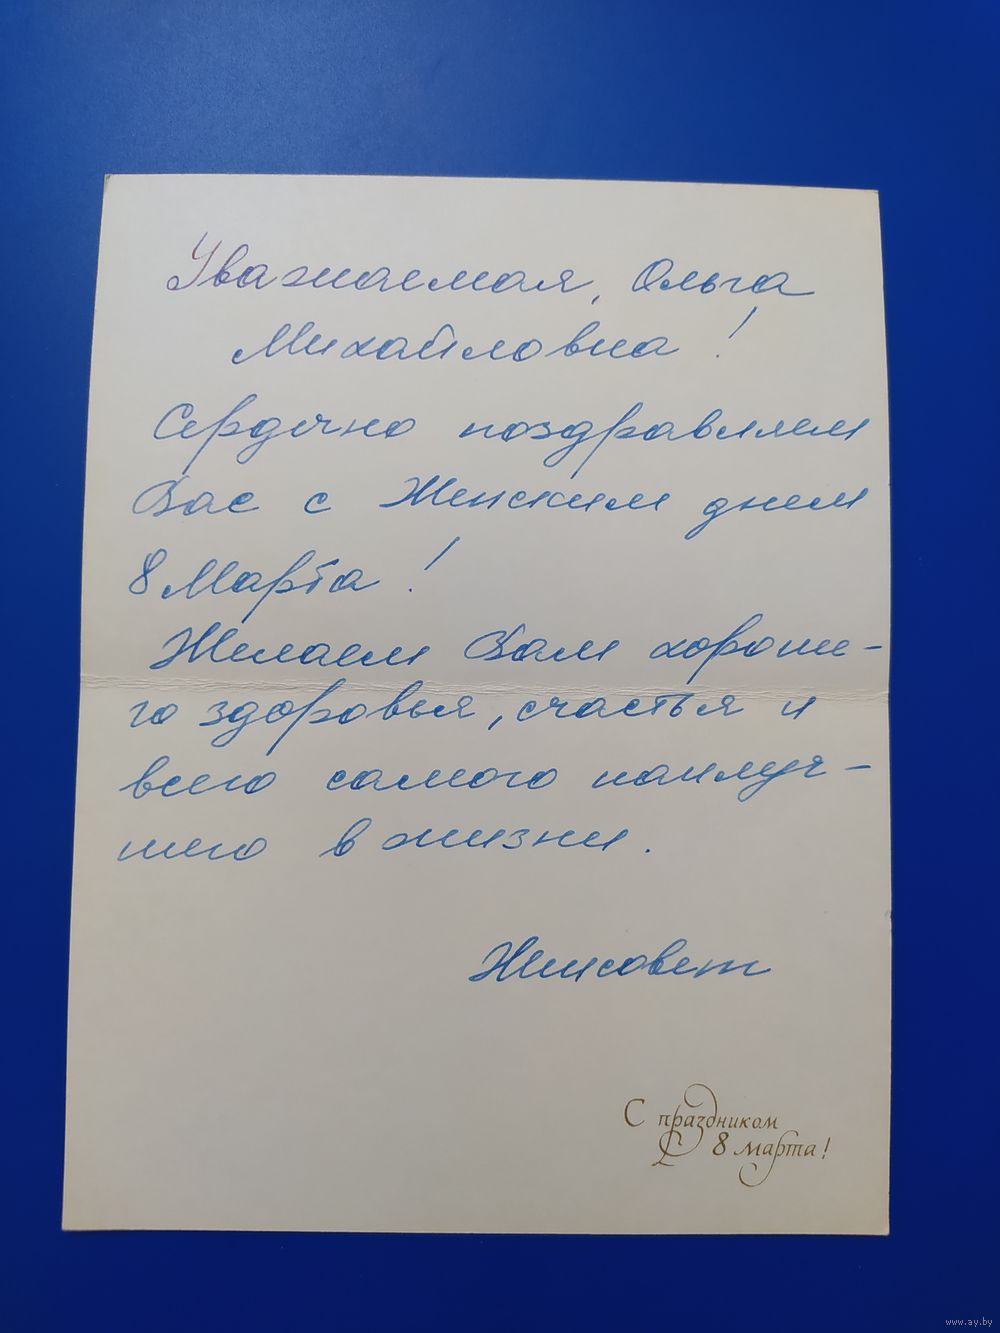 Уважаемая, Ольга
Михайловна!
Сердечно поздравляем
Вас с Женским днем
8 Марта!
Желаем Вам хороше-
го здоровья, счастья и
всего самого наилуч-
шего в жизни.
Женсовет
С праздником
8 марта!
www.ay.by